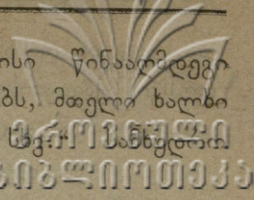 ისი წინააღმდეგი
ებს, მთელი ხალხი
ეროვნული
ბიბლიოთეკა